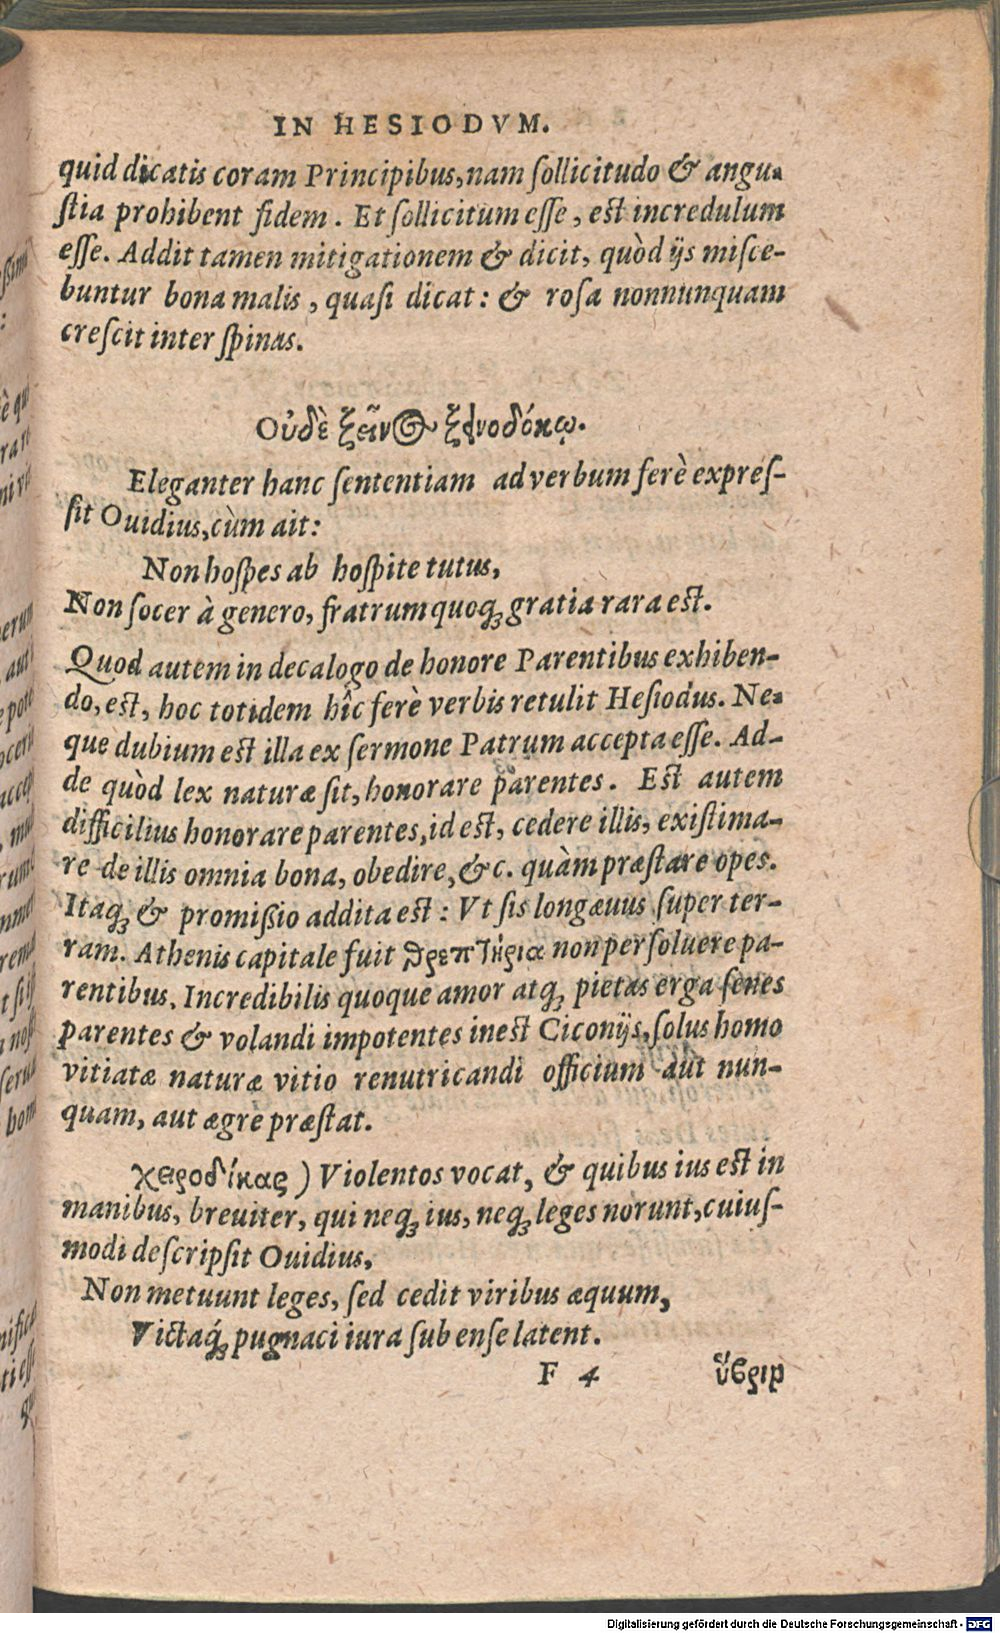 IN HESIODVM.
quid dicatis coram Principibus, nam ſollicitudo & angu-
ſtia prohibent fidem. Et ſollicitum eſſe, eſt incredulum
eſſe. Addit tamen mitigationem & dicit, quòd ijs miſce-
buntur bona malis, quaſi dicat: & roſa nonnunquam
creſcit inter ſpinas.
Οὐδὲ ξεῖν@ ξεινοδόκῳ.
Eleganter hanc ſententiam ad verbum ferè expreſ-
ſit Ouidius, cùm ait:
Non hoſpes ab hoſpite tutus,
Non ſocer à genero, fratrum quoq; gratia rara eſt.
Quod autem in decalogo de honore Parentibus exhiben-
do, eſt, hoc totidem hîc ferè verbis retulit Heſiodus. Ne-
que dubium eſt illa ex ſermone Patrum accepta eſſe. Ad-
de quòd lex naturæ ſit, honorare parentes. Eſt autem
difficilius honorare parentes, id eſt, cedere illis, exiſtima-
re de illis omnia bona, obedire, &c. quàm præſtare opes.
Itaq; & promißio addita eſt: Vt ſis longæuus ſuper ter-
ram. Athenis capitale fuit θρεπτήρια non perſoluere pa-
rentibus. Incredibilis quoque amor atq; pietas erga ſenes
parentes & volandi impotentes ineſt Ciconijs, ſolus homo
vitiatæ naturæ vitio renutricandi officium aut nun-
quam, aut ægre præſtat.
χειροδίκας ) Violentos vocat, & quibus ius eſt in
manibus, breuiter, qui neq; ius, neq; leges norunt, cuiuſ-
modi deſcripſit Ouidius,
Non metuunt leges, ſed cedit viribus æquum,
Victaq́; pugnaci iura ſub enſe latent.
F 4 ὕβριν
Digitalisierung gefördert durch die Deutsche Forschungsgemeinschaft - DFG